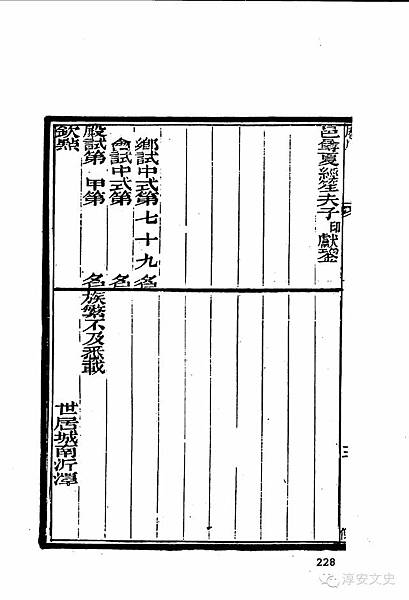 邑尊夏經笙夫子印獻
鄉試中式第七十九名
會試中式第 名
殿試第 甲第 名
欽點
族繁不及悉載
世居城南沂澤
228
淳安文史